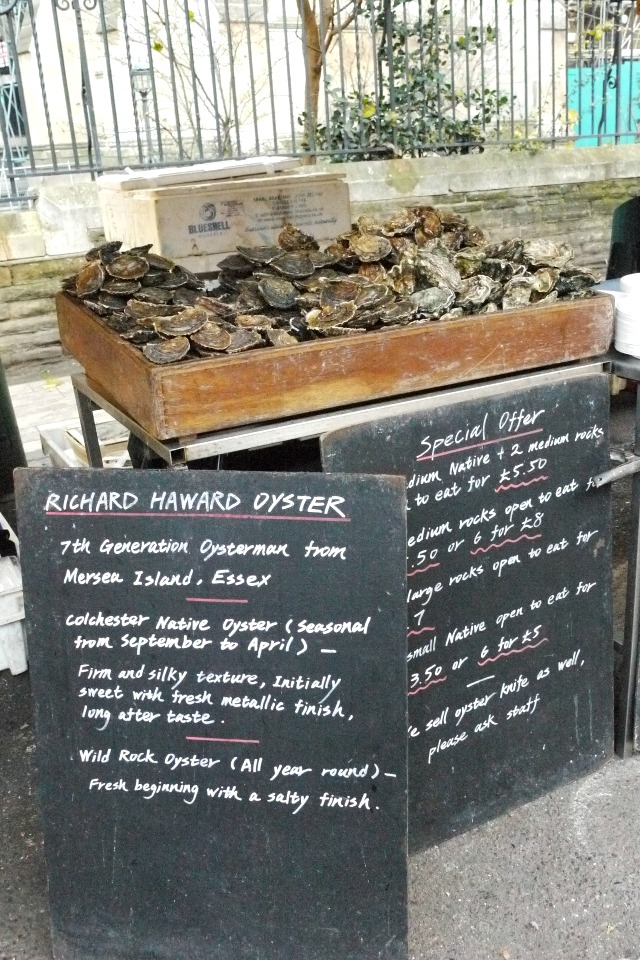 BLUESHELL
RICHARD HAWARD OYSTER
7th Generation Oysterman from
Mersea Island, Essex
Colchester Native Oyster (seasonal
from September to April) —
Firm and silky texture, Initially
sweet with fresh metallic finish,
long after taste.
Wild Rock Oyster (All year round) —
Fresh beginning with a salty finish.
Special Offer
dium Native + 2 medium rocks
to eat for £5.50
edium rocks open to eat f
.50 or 6 for £8
large rocks open to eat for
7
small Native open to eat for
3.50 or 6 for £5
e sell oyster knife as well,
please ask staff